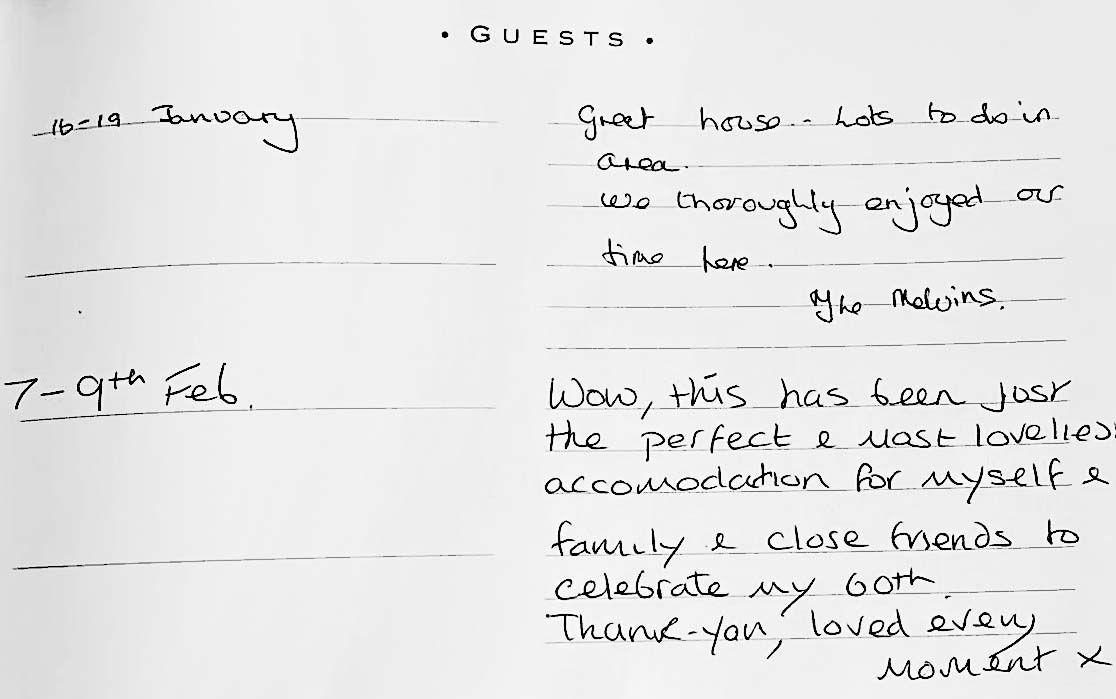 • GUESTS •
16-19 January
Great house - Lots to do in
area.
We thoroughly enjoyed our
time here.
The Melvins.
7-9th Feb.
Wow, this has been just
the perfect & most lovelies
accomodation for myself &
family & close friends to
celebrate my 60th.
Thank-you, loved every
moment x